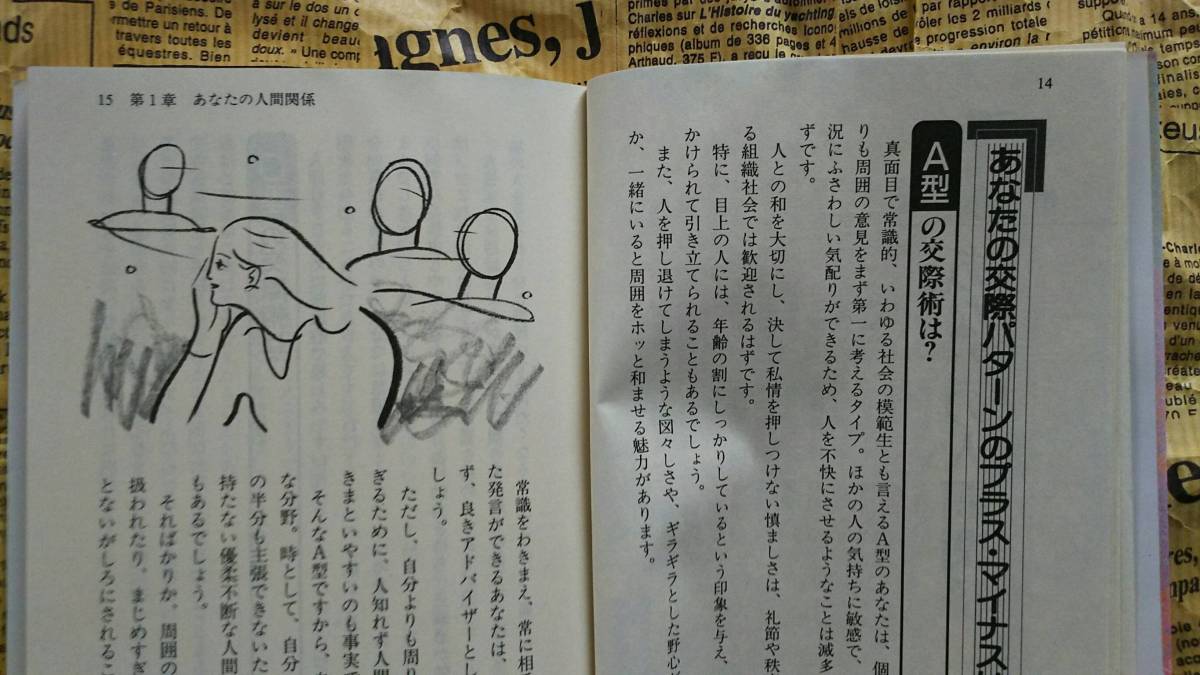 14
あなたの交際パターンのプラス・マイナス
A型の交際術は?
真面目で常識的、いわゆる社会の模範生とも言えるA型のあなたは、個
りも周囲の意見をまず第一に考えるタイプ。ほかの人の気持ちに敏感で、
況にふさわしい気配りができるため、人を不快にさせるようなことは滅多
ずです。
人との和を大切にし、決して私情を押しつけない慎ましさは、礼節や秩
る組織社会では歓迎されるはずです。
特に、目上の人には、年齢の割にしっかりしているという印象を与え、
かけられて引き立てられることもあるでしょう。
また、人を押し退けてしまうような図々しさや、ギラギラとした野心が
か、一緒にいると周囲をホッと和ませる魅力があります。
15 第1章 あなたの人間関係
常識をわきまえ、常に相
た発言ができるあなたは、
ず、良きアドバイザーとし
しょう。
ただし、自分よりも周り
ぎるために、人知れず人間
きまといやすいのも事実で
そんなA型ですから、
な分野。時として、自分
の半分も主張できないた
持たない優柔不断な人間
もあるでしょう。
そればかりか、周囲の
扱われたり、まじめすぎ
とないがしろにされるこ
nds
de Parisiens. De
rmettre un retour à
travers toutes les
équestres. Bien
a sur le dos un c
lysé et il change
devient beau
doux. » Une comp
agnes, J
Charles sur L'Histoire du yachting
réflexions et de recherches icono
phiques (album de 336 pages et 4
Arthaud. 375 F), a reçu le
millions de
hausse de
par rapport
ôler los 2 milliards
progression totale
environ la
suppo
a 14 ans.
pétitions